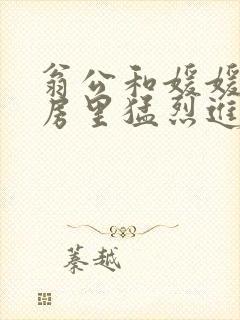 翁公和媛媛
居里猛烈进
蓁越